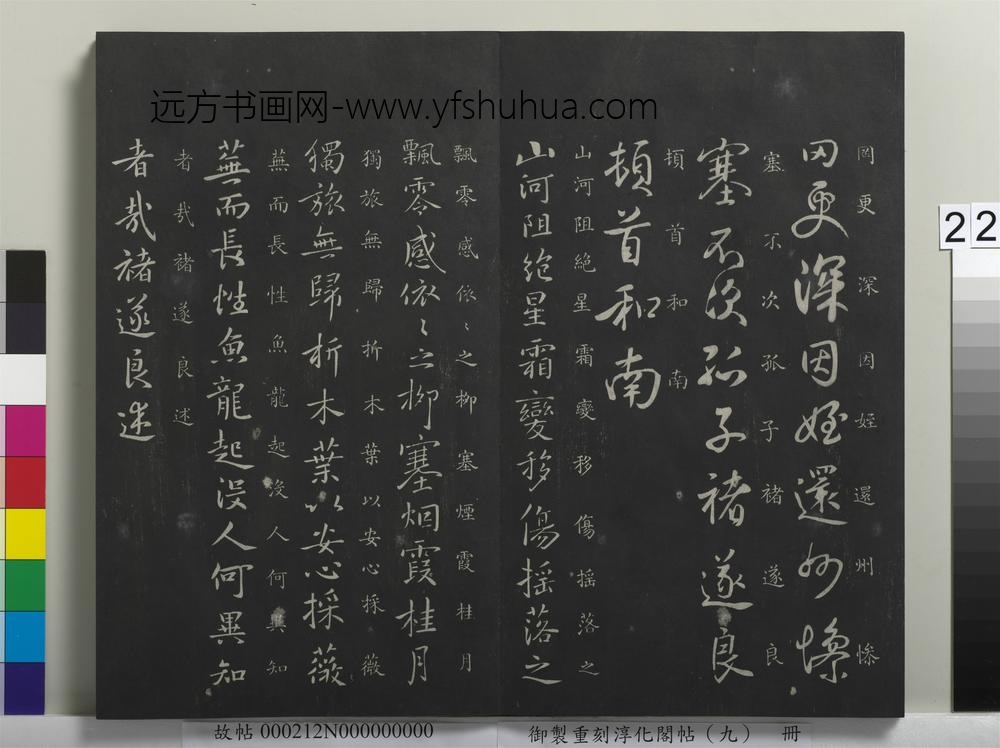 远方书画网-www.yfshuhua.com
罔更深因姪還州慘
罔更深因姪還州慘
塞不次孤子褚遂良
塞不次孤子褚遂良
頓首和南
頓首和南
山河阻絕星霜變移傷搖落之
山河阻絕星霜變移傷搖落之
飄零感依依之柳塞煙霞桂月
飄零感依〻之柳塞烟霞桂月
獨旅無歸折木葉以安心採薇
獨旅無歸折木葉以安心採薇
蕪而長性魚龍起沒人何異知
蕪而長性魚龍起沒人何異知
者哉褚遂良述
者哉褚遂良述
22
故帖 000212N000000000
御製重刻淳化閣帖（九） 冊